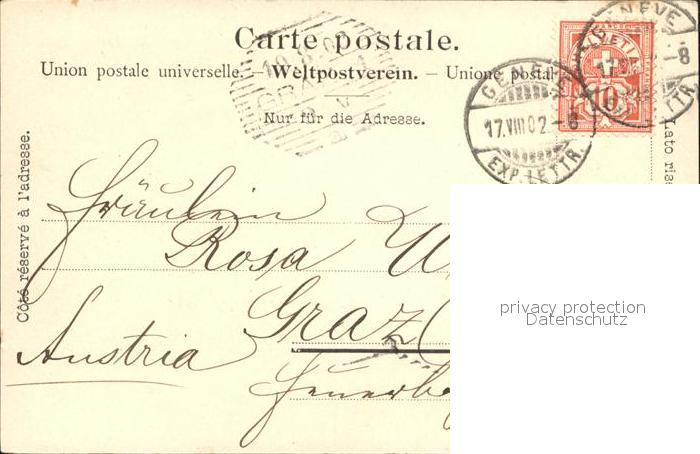 Carte postale.
Union postale universelle. — Weltpostverein. — Unione postal
Nur für die Adresse.
Côté réservé à l'adresse.
Lato rise
GENÈVE
17.VIII.02.-8
EXP. LETTR.
HELVETIA
10
GRAZ
Fräulein
Rosa
Graz
Austria
privacy protection
Datenschutz